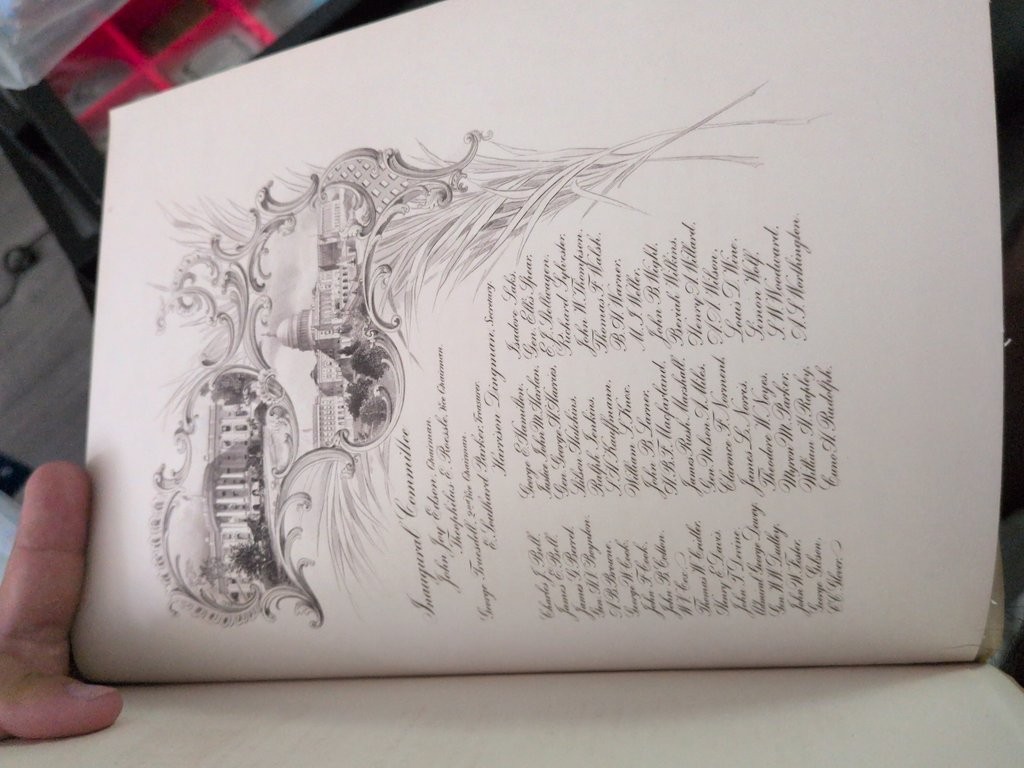 Inaugural Committee
John Joy Edson, Chairman.
Theophilus E. Roessle, Vice Chairman.
George Truesdell, 2nd Vice Chairman.
E. Southard Parker, Treasurer.
Harrison Dingman, Secretary.
Charles J. Bell.
James E. Bell.
James G. Berret.
Gen. H.V. Boynton.
Browne.
George W. Cook.
John F. Cook.
John B. Cotton.
W.V. Cox.
Thomas W. Cridler.
Henry E. Davis.
John T. Devine.
Admiral George Dewey.
Gen. W.W. Dudley.
John W. Foster.
George Gibson.
C.C. Glover.
George E. Hamilton.
Justice John M. Harlan.
Gen. George H. Harries.
Stilson Hutchins.
Ralph Jenkins.
S.H. Kauffmann.
William S. Knox.
John B. Larner.
H.B.F. Macfarland.
James Rush Marshall.
Gen. Nelson A. Miles.
Clarence F. Norment.
James L. Norris.
Theodore W. Noyes.
Myron M. Parker.
William W. Rapley.
Cuno H. Rudolph.
Isadore Saks.
Gen. Ellis Spear.
E.J. Stellwagen.
Richard Sylvester.
John W. Thompson.
Thomas F. Walsh.
B.H. Warner.
M.I. Weller.
John B. Wight.
Beriah Wilkins.
Henry A. Willard.
A.A. Wilson.
Louis D. Wine.
Simon Wolf.
S.W. Woodward.
A.S. Worthington.